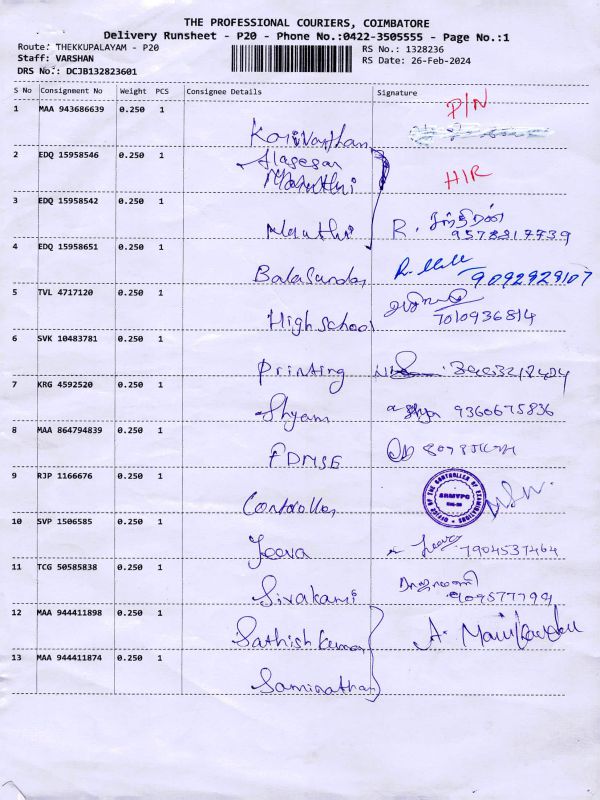 THE PROFESSIONAL COURIERS, COIMBATORE
Delivery Runsheet - P20 - Phone No.:0422-3505555 - Page No.:1
Route: THEKKUPALAYAM - P20
RS No.: 1328236
Staff: VARSHAN
RS Date: 26-Feb-2024
DRS No.: DCJB132823601
S No Consignment No Weight PCS Consignee Details Signature
1 MAA 943686639 0.250 1 P/N
2 EDQ 15958546 0.250 1 H/R
3 EDQ 15958542 0.250 1 R.
9578217739
4 EDQ 15958651 0.250 1 Balasundar 9092929107
5 TVL 4717120 0.250 1 High school 7010936814
6 SVK 10483781 0.250 1 Printing
7 KRG 4592520 0.250 1 Shyam 9360675836
8 MAA 864794839 0.250 1 FDMSE
9 RJP 1166676 0.250 1 Controller OFFICE OF THE CONTROLLER OF EXAMINATIONS SRMVPC
10 SVP 1506585 0.250 1 Jeeva Jeeva 7904537464
11 TCG 50585838 0.250 1 Sivakami
12 MAA 944411898 0.250 1 Sathish kumar A. Manikandan
13 MAA 944411874 0.250 1 Saminathan